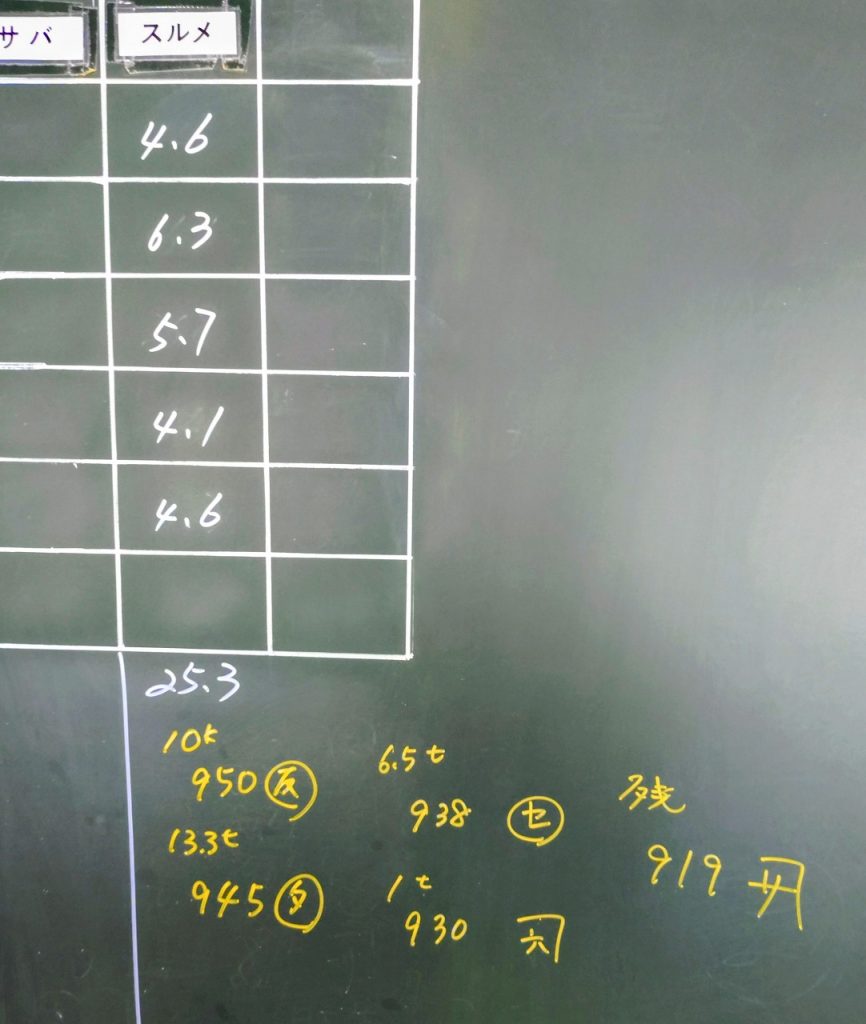 サバ スルメ
4.6
6.3
5.7
4.1
4.6
25.3
10t
950
13.3t
945
6.5t
938 セ
1t
930 六
残
919 サ